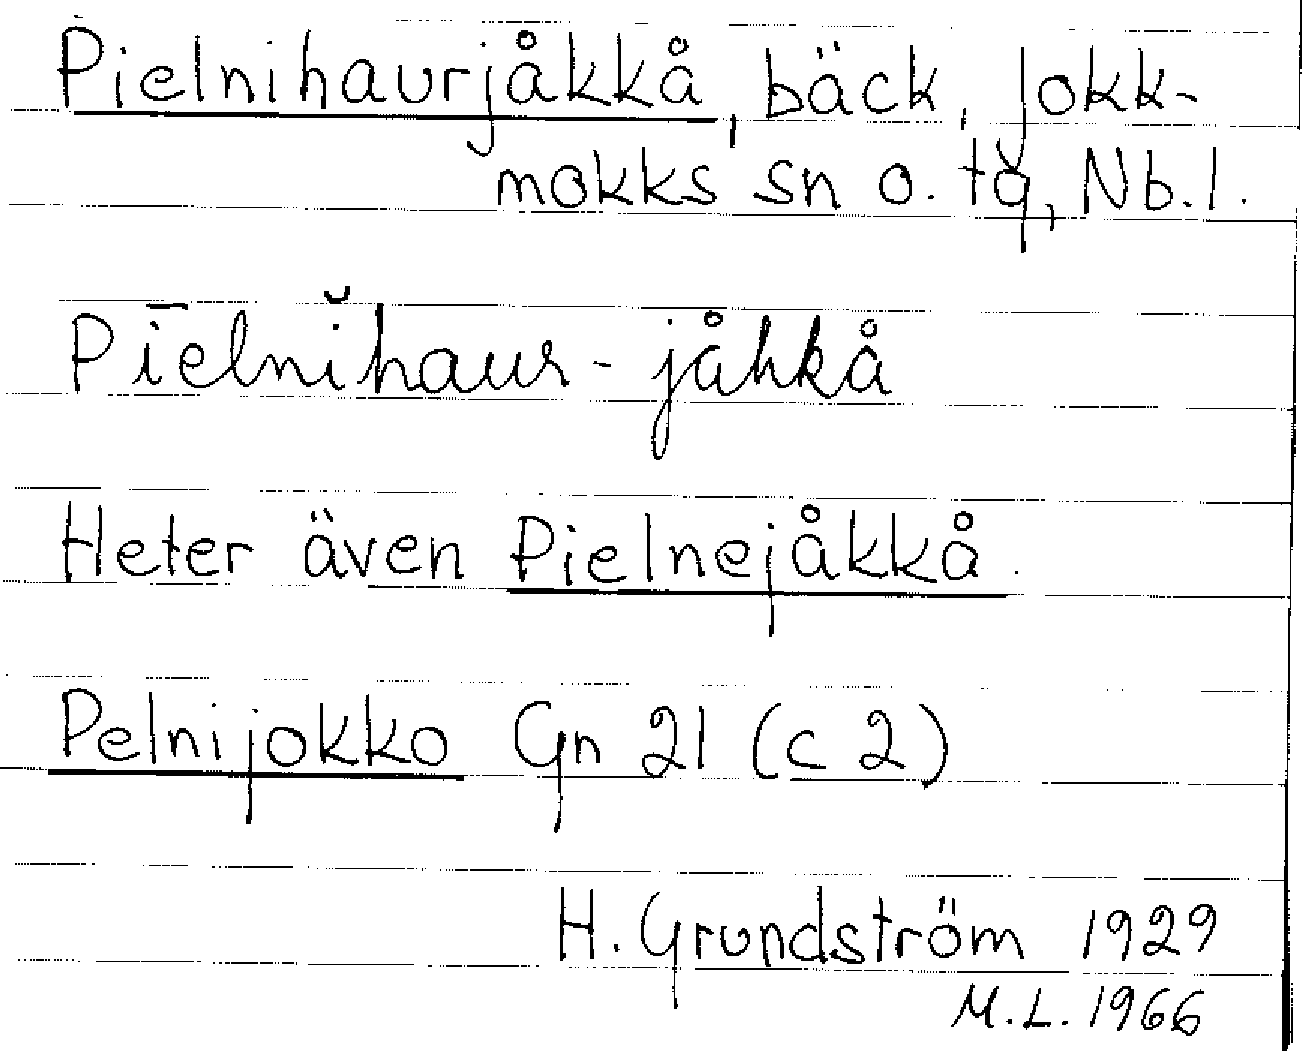 Pielnihaurjåkkå, bäck, Jokk-
mokks sn o. tg, Nb.l.
Pīelnĭhaur-jåhkå
Heter även Pielnejåkkå.
Pelnijokko Gn 21 (c 2)
H. Grundström 1929
M.L. 1966